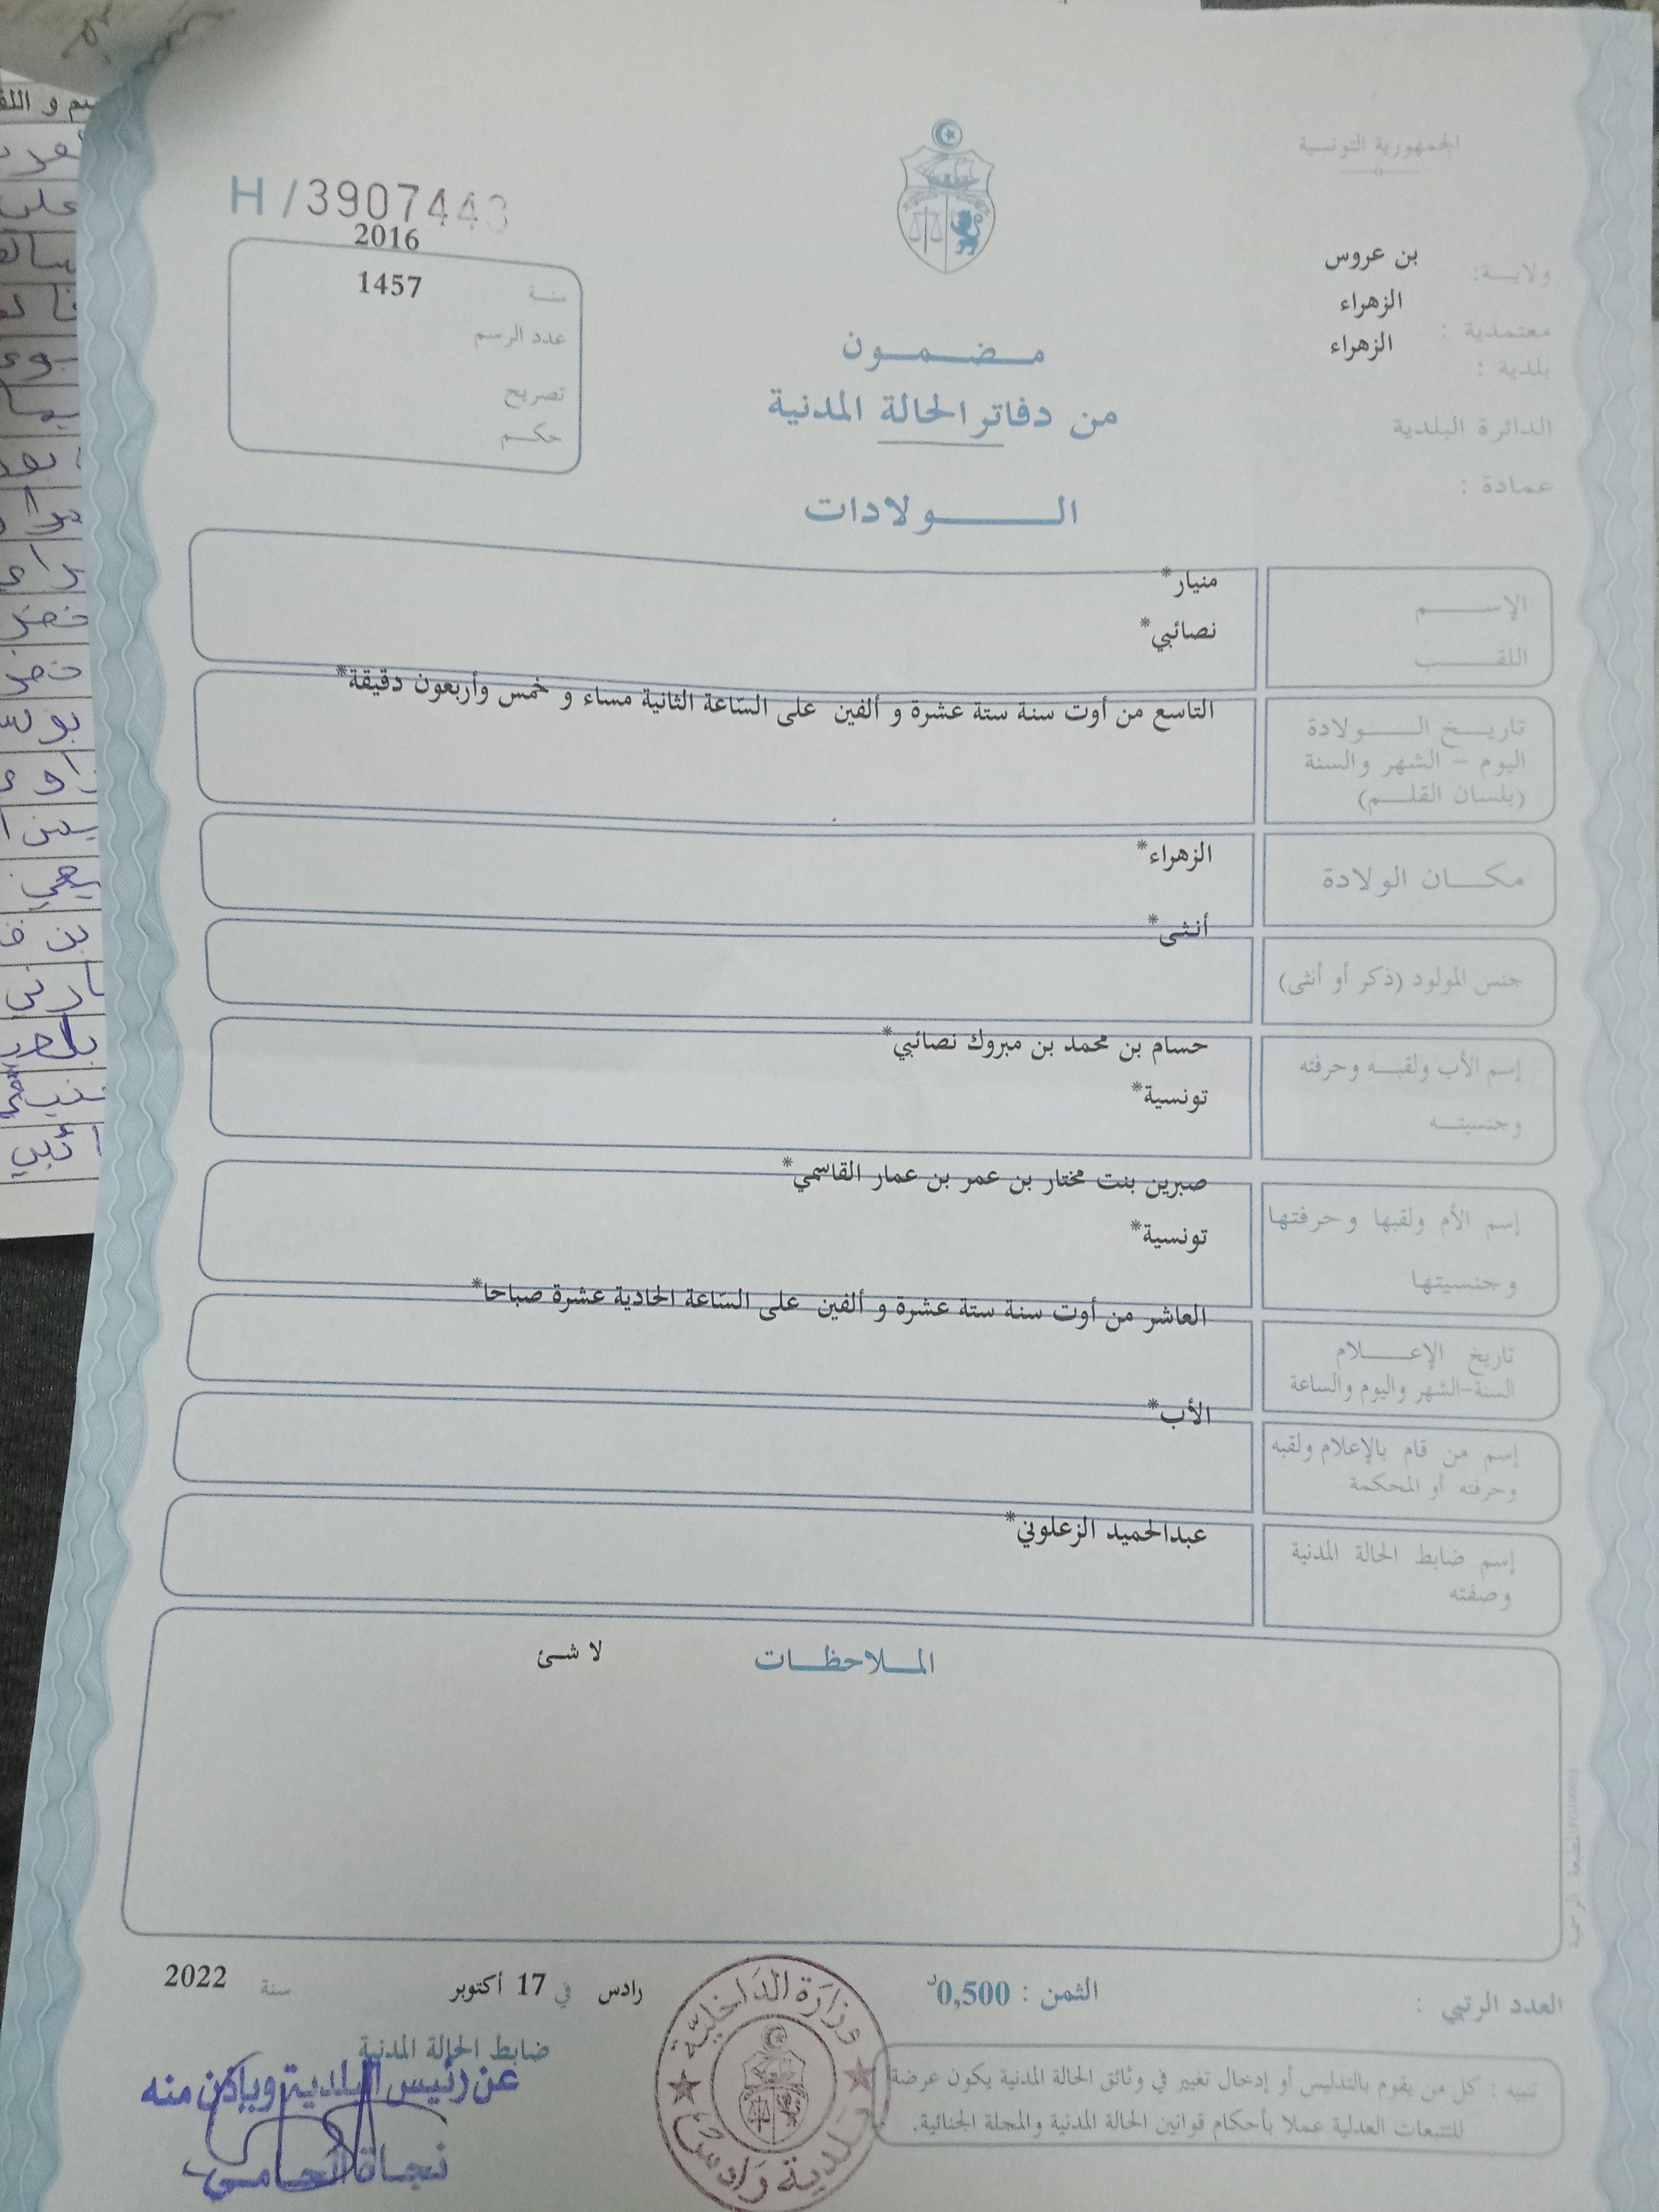 الجمهورية التونسية
H / 3907443
2016
سنة 1457
عدد الرسم
تصريح
حكم
ولاية: بن عروس
الزهراء
معتمدية :
الزهراء
بلدية :
الدائرة البلدية
عمادة :
مضمون
من دفاتر الحالة المدنية
الولادات
الإسم منيار*
اللقب نصائبي*
التاسع من أوت سنة ستة عشرة و ألفين على السّاعة الثانية مساء و خمس وأربعون دقيقة*
تاريخ الولادة
اليوم - الشهر والسنة
(بلسان القلم)
مكان الولادة الزهراء*
أنثى*
جنس المولود (ذكر أو أنثى)
حسام بن محمد بن مبروك نصائبي*
إسم الأب ولقبه وحرفته
تونسية*
وجنسيته
صبرين بنت مختار بن عمر بن عمار القاسمي*
إسم الأم ولقبها وحرفتها
تونسية*
وجنسيتها
العاشر من أوت سنة ستة عشرة و ألفين على السّاعة الحادية عشرة صباحا*
تاريخ الإعلام
السنة-الشهر واليوم والساعة
الأب*
إسم من قام بالإعلام ولقبه
وحرفته أو المحكمة
عبدالحميد الزعلوني*
إسم ضابط الحالة المدنية
وصفته
الملاحظات لا شئ
العدد الرتبي :
الثمن : 0,500د
رادس في 17 أكتوبر سنة 2022
ضابط الحالة المدنية
عن رئيس البلدية وبإذن منه
نجاة
وزارة الداخلية
بلدية رادس
تنبيه : كل من يقوم بالتدليس أو إدخال تغيير في وثائق الحالة المدنية يكون عرضة
للتتبعات العدلية عملا بأحكام قوانين الحالة المدنية والمجلة الجنائية.
المطبعة الرسمية